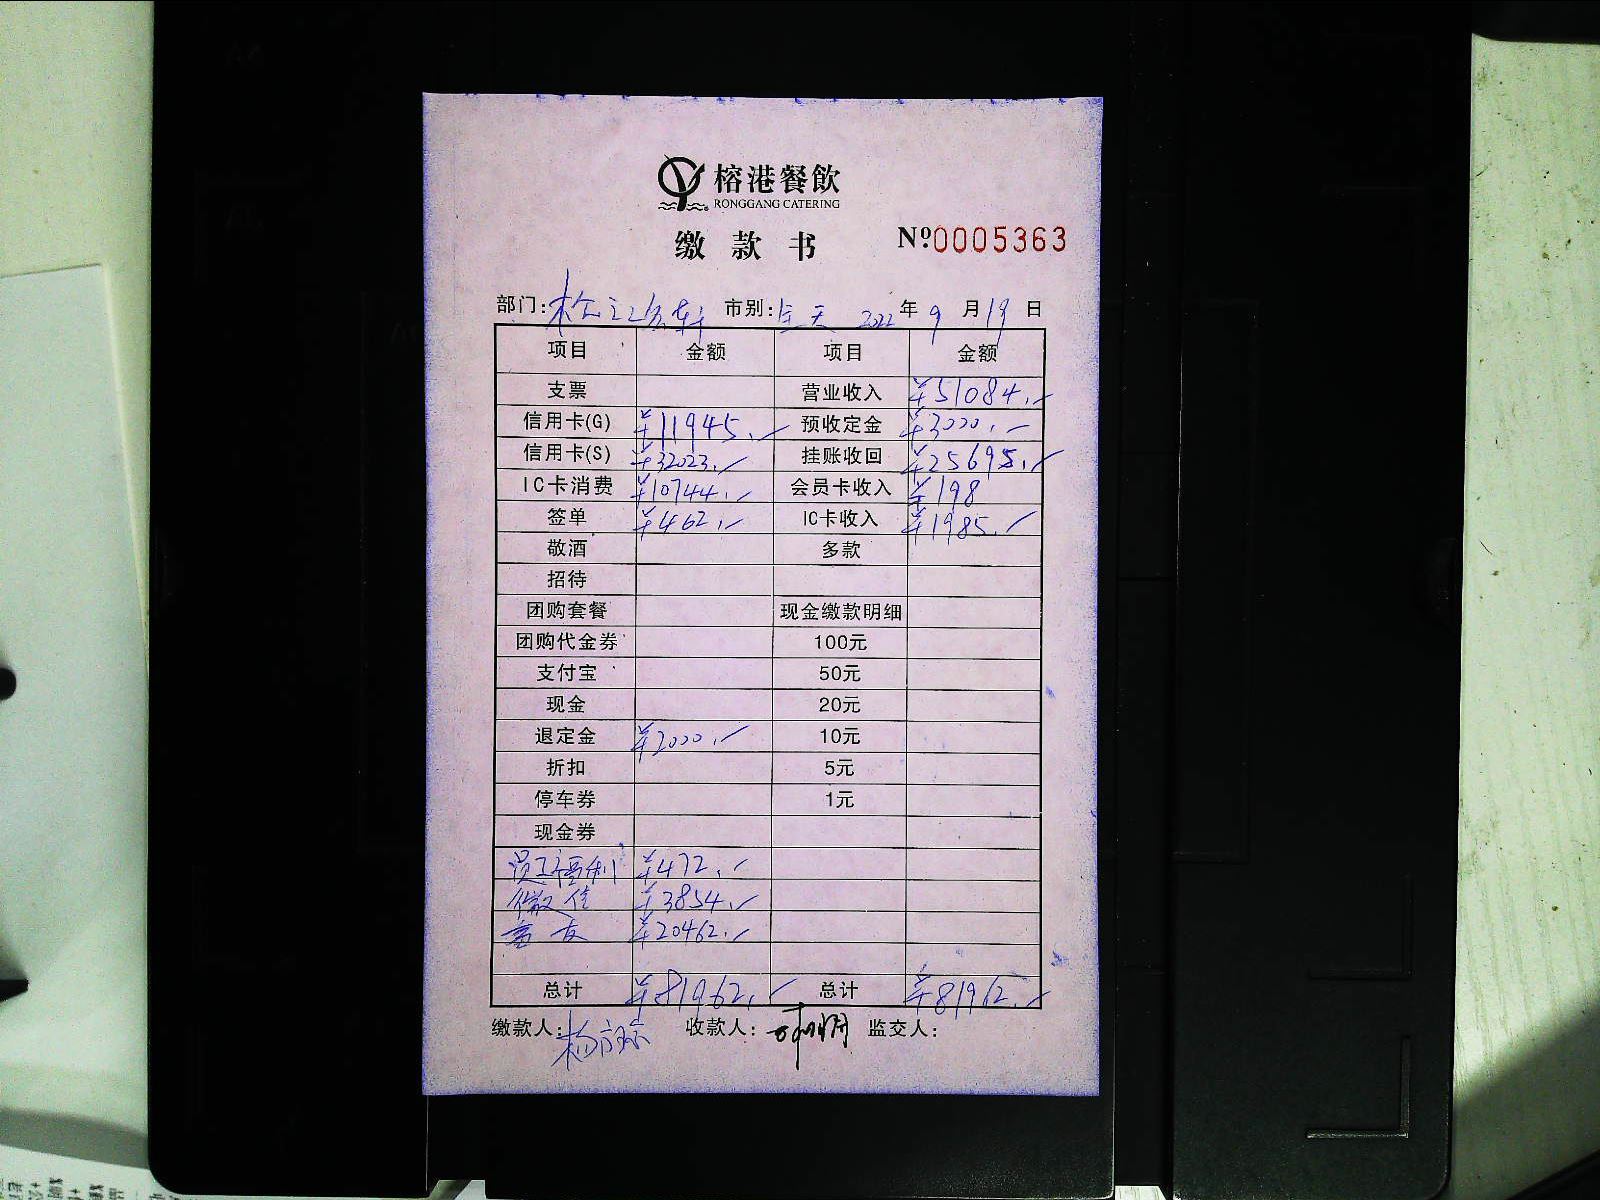 榕港餐飲
RONGGANG CATERING
缴款书 Nº0005363
部门: 市别:全天 2022年9月19日
项目 金额 项目 金额
支票 营业收入 ¥51084.-
信用卡(G) ¥11945.- 预收定金 ¥3000.-
信用卡(S) ¥32023.- 挂账收回 ¥25695.-
IC卡消费 ¥10744.- 会员卡收入 ¥198
签单 ¥462.- IC卡收入 ¥1985.-
敬酒 多款
招待
团购套餐 现金缴款明细
团购代金券 100元
支付宝 50元
现金 20元
退定金 ¥2000.- 10元
折扣 5元
停车券 1元
现金券
员工福利 ¥472.-
微信 ¥3854.-
¥20462.-
总计 ¥81962.- 总计 ¥81962.-
缴款人: 收款人: 监交人: